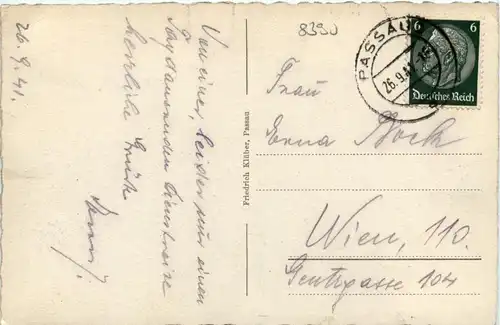 26.9.41.
Von einer, leider nur einen
Tag dauernden Dienstreise
herzliche Grüße
8390
PASSAU
26.9.41
6 6
Deutsches Reich
Frau
Erna Bock
Wien, 110.
Gentzgasse 104
Friedrich Klüber, Passau